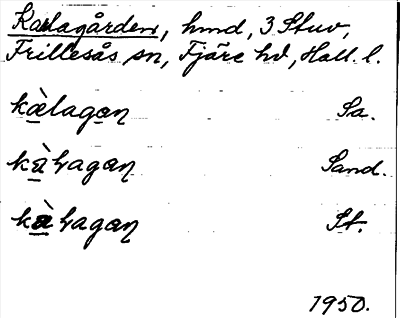 Karlagården, hmd, 3 Stuv,
Frillesås sn, Fjäre hd, Hall. l.
kæ̀lagan Sa.
kàɽagan Sand.
kàɽagan St.
1950.